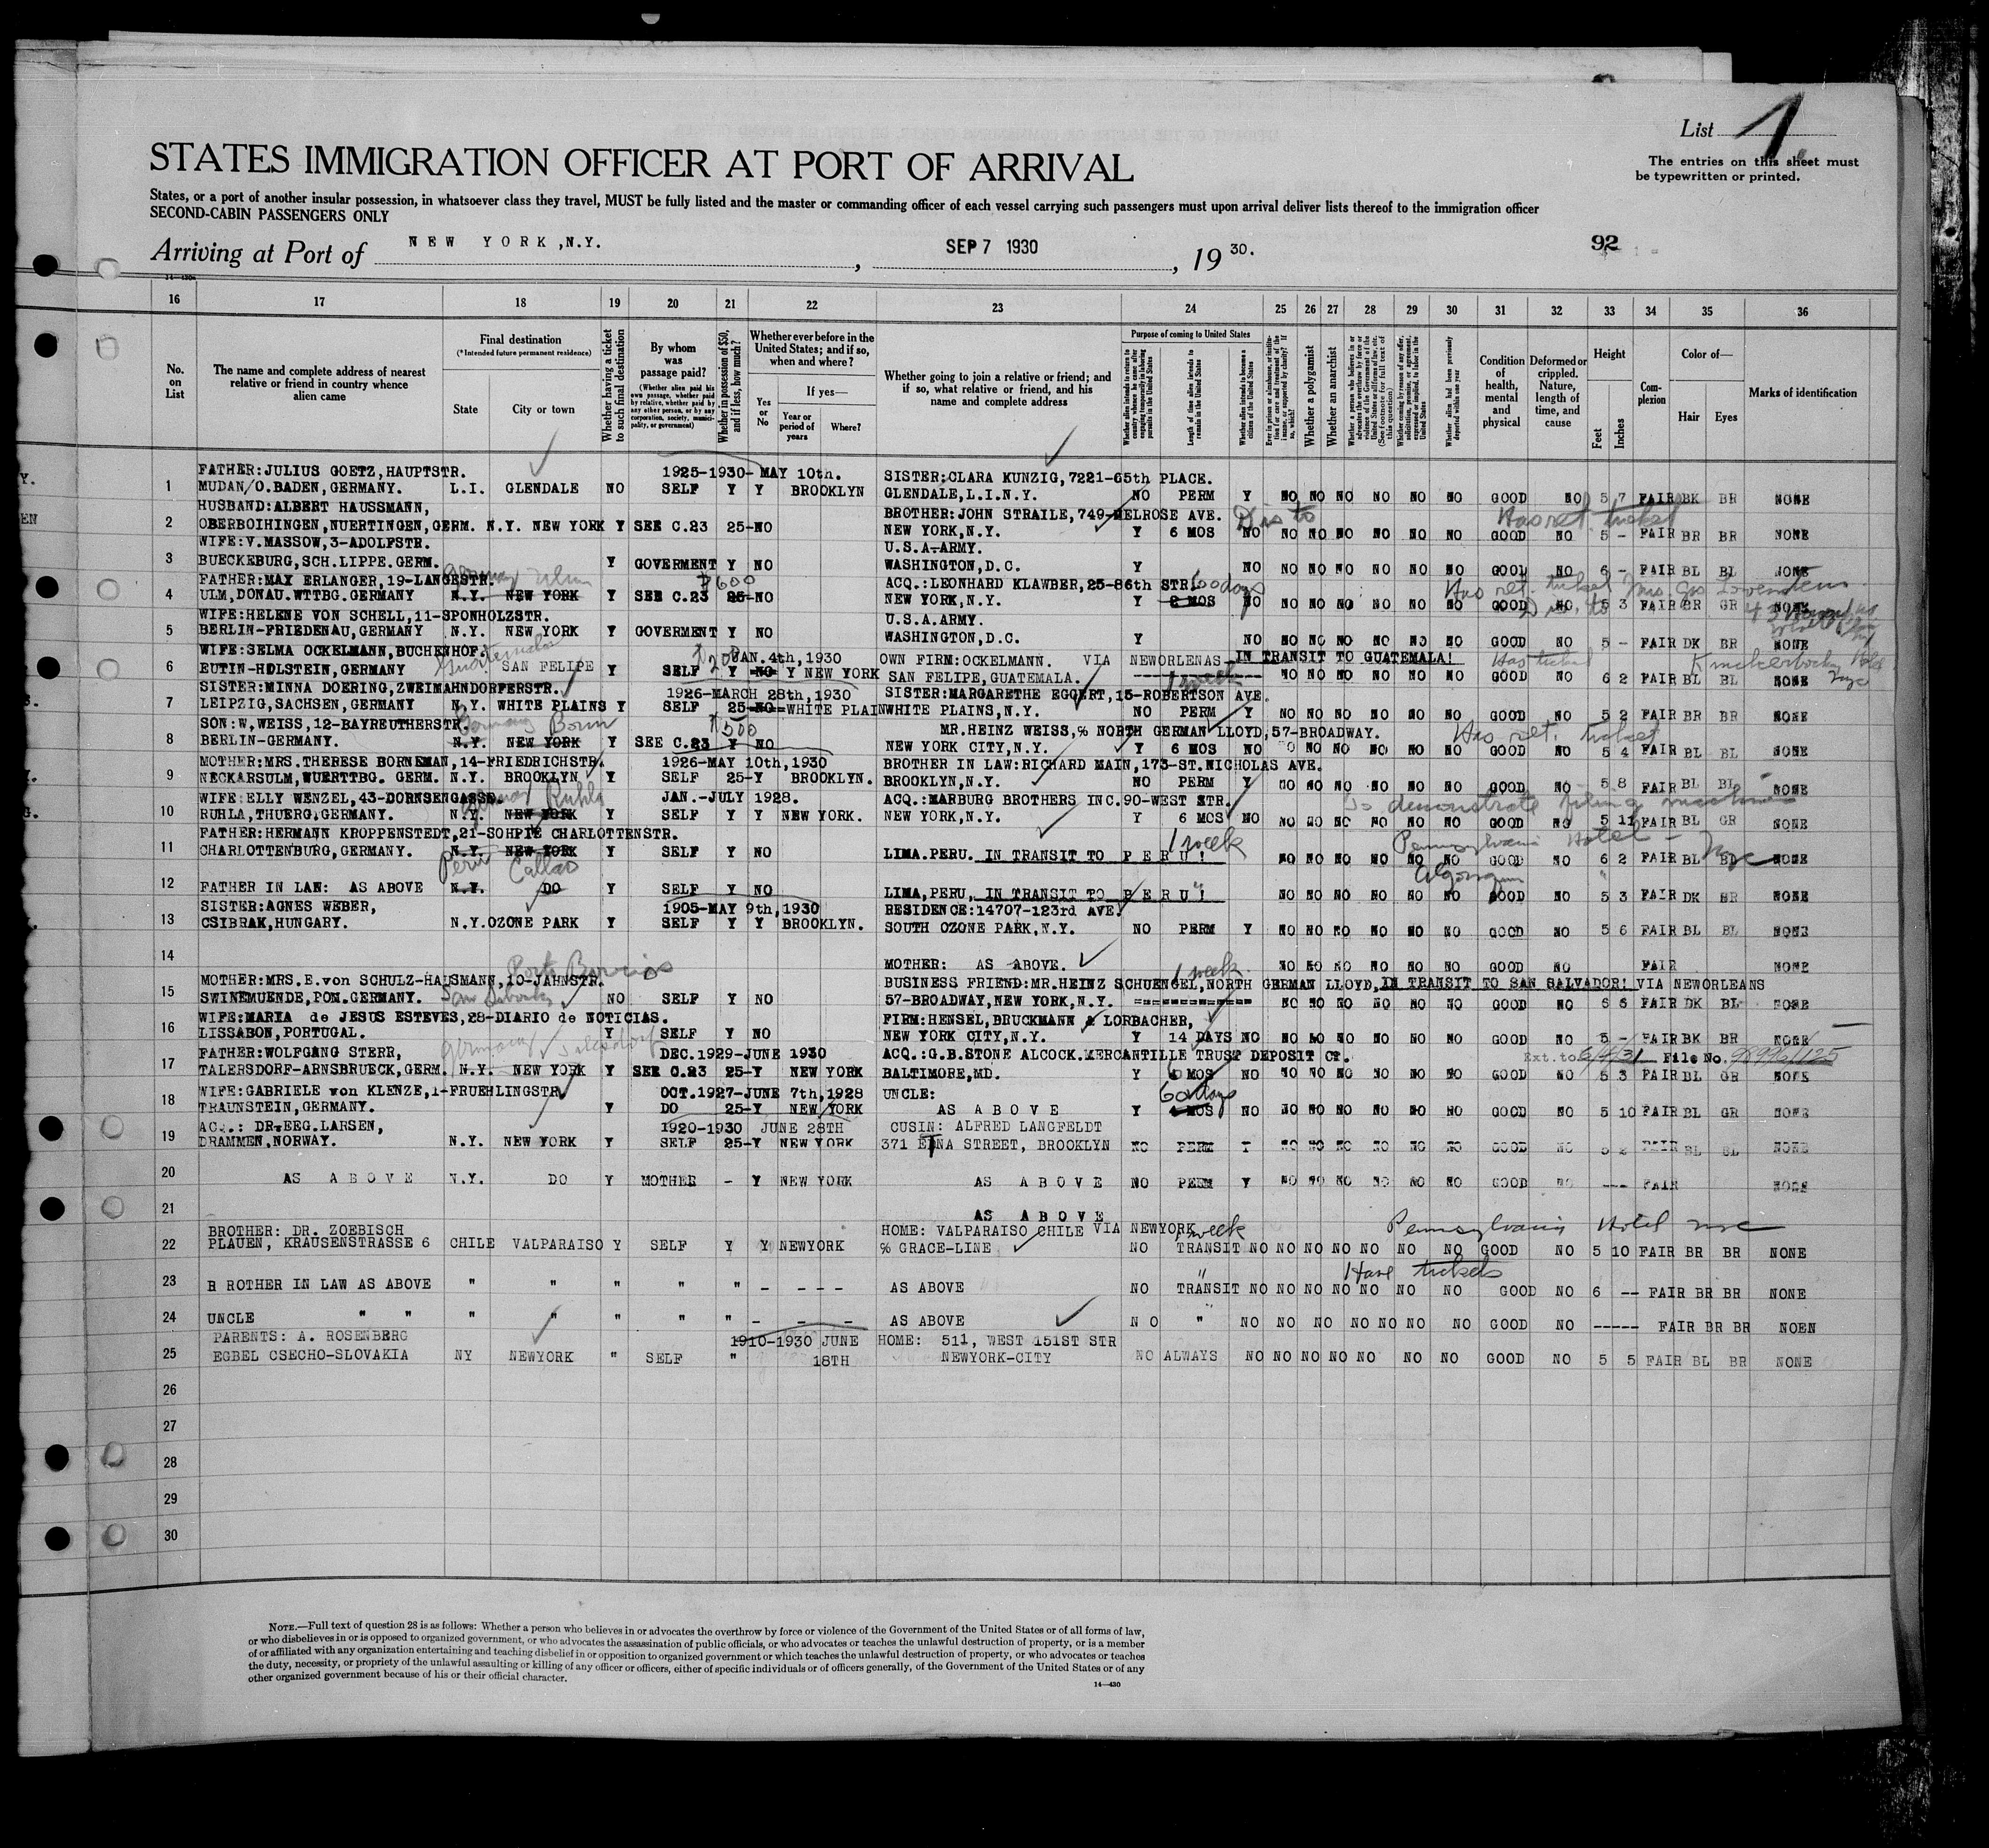 List 1
The entries on this sheet must
be typewritten or printed.
STATES IMMIGRATION OFFICER AT PORT OF ARRIVAL
States, or a port of another insular possession, in whatsoever class they travel, MUST be fully listed and the master or commanding officer of each vessel carrying such passengers must upon arrival deliver lists thereof to the immigration officer
SECOND-CABIN PASSENGERS ONLY
Arriving at Port of NEW YORK, N.Y. , SEP 7 1930 , 19 30.
92
14-430
16 17 18 19 20 21 22 23 24 25 26 27 28 29 30 31 32 33 34 35 36
No. on List
The name and complete address of nearest relative or friend in country whence alien came
Final destination
(*Intended future permanent residence)
State
City or town
Whether having a ticket to such final destination
By whom was passage paid?
(Whether alien paid his own passage, whether paid by relative, whether paid by any other person, or by any corporation, society, municipality, or government)
Whether in possession of $50, and if less, how much?
Whether ever before in the United States; and if so, when and where?
Yes or No
If yes—
Year or period of years
Where?
Whether going to join a relative or friend; and if so, what relative or friend, and his name and complete address
Purpose of coming to United States
Length of time alien intends to remain in the United States
Whether alien intends to become a citizen of the United States
Whether a polygamist
Whether an anarchist
Condition of health, mental and physical
Deformed or crippled. Nature, length of time, and cause
Height
Feet
Inches
Complexion
Color of—
Hair
Eyes
Marks of identification
FATHER:JULIUS GOETZ,HAUPTSTR. 1925-1930-MAY 10th. SISTER:CLARA KUNZIG,7221-65th PLACE.
1 MUDAN/O.BADEN,GERMANY. L.I. GLENDALE NO SELF Y Y BROOKLYN GLENDALE,L.I.N.Y. NO PERM Y NO NO NO NO NO NO GOOD NO 5 7 FAIR BK BR NONE
HUSBAND:ALBERT HAUSSMANN, BROTHER:JOHN STRAILE,749-MELROSE AVE. Dis to Has ret. ticket
2 OBERBOIHINGEN,NUERTINGEN,GERM. N.Y. NEW YORK Y SEE C.23 25-NO NEW YORK,N.Y. Y 6 MOS NO NO NO NO NO NO NO GOOD NO 5 - FAIR BR BR NONE
WIFE:V.MASSOW,3-ADOLFSTR. U.S.A-ARMY.
3 BUECKEBURG,SCH.LIPPE.GERM. Y GOVERMENT Y NO WASHINGTON,D.C. Y NO NO NO NO NO NO NO GOOD NO 6 - FAIR BL BL NONE
FATHER:MAX ERLANGER,19-LANGESTR. Germany Ulm $600 ACQ.:LEONHARD KLAWBER,25-86th STR. 60 days Has ret. ticket
4 ULM,DONAU.WTTBG.GERMANY N.Y. NEW YORK Y SEE C.23 25-NO NEW YORK,N.Y. Y 2 MOS NO NO NO NO NO NO NO GOOD NO 5 3 FAIR BR GR NONE
WIFE:HELENE VON SCHELL,11-SPONHOLZSTR. U.S.A. ARMY.
5 BERLIN-FRIEDENAU,GERMANY N.Y. NEW YORK Y GOVERMENT Y NO WASHINGTON,D.C. Y NO NO NO NO NO NO NO GOOD NO 5 - FAIR DK BR NONE
WIFE:SELMA OCKELMANN,BUCHENHOF. Guatemala $200 JAN.4th,1930 OWN FIRM:OCKELMANN. VIA NEWORLENAS IN TRANSIT TO GUATEMALA! Has ticket Knickerbocker Hotel nyc
6 EUTIN-HOLSTEIN,GERMANY SAN FELIPE Y SELF Y NO Y NEW YORK SAN FELIPE,GUATEMALA. NO NO NO NO NO NO GOOD NO 6 2 FAIR BL BL NONE
SISTER:MINNA DOERING,ZWEIMAHNDORFERSTR. 1926-MARCH 28th,1930 SISTER:MARGARETHE EGGERT,15-ROBERTSON AVE. 1 week
7 LEIPZIG,SACHSEN,GERMANY N.Y. WHITE PLAINS Y SELF 25-NO-WHITE PLAIN WHITE PLAINS,N.Y. NO PERM Y NO NO NO NO NO NO GOOD NO 5 2 FAIR BR BR NONE
SON:W,WEISS,12-BAYREUTHERSTR. Germany Bonn $500 MR.HEINZ WEISS,% NORTH GERMAN LLOYD,57-BROADWAY. Has ret. ticket
8 BERLIN-GERMANY. N.Y. NEW YORK Y SEE C.23 Y NO NEW YORK CITY,N.Y. Y 6 MOS NO NO NO NO NO NO NO GOOD NO 5 4 FAIR BL BL NONE
MOTHER:MRS.THERESE BORNEMAN,14-FRIEDRICHSTR. 1926-MAY 10th,1930 BROTHER IN LAW:RICHARD MAIN,173-ST.NICHOLAS AVE.
9 NECKARSULM,WUERTTBG. GERM. N.Y. BROOKLYN Y SELF 25-Y BROOKLYN. BROOKLYN,N.Y. NO PERM Y NO NO NO NO NO NO GOOD NO 5 8 FAIR BL BL NONE
WIFE:ELLY WENZEL,43-DORNSENGASSE. Germany Ruhla JAN.-JULY 1928. ACQ.:MARBURG BROTHERS INC.90-WEST STR. To demonstrate filing machines
10 RUHLA,THUERG.GERMANY. N.Y. NEW YORK Y SELF Y Y NEW YORK. NEW YORK,N.Y. Y 6 MOS NO NO NO NO NO NO NO GOOD NO 5 11 FAIR BL GR NONE
FATHER:HERMANN KROPPENSTEDT,21-SOHPIE CHARLOTTENSTR. 1 week Pennsylvania Hotel - nyc
11 CHARLOTTENBURG,GERMANY. N.Y. NEW YORK Y SELF Y NO LIMA.PERU. IN TRANSIT TO PERU! NO NO NO NO NO NO GOOD NO 6 2 FAIR BL BL NONE
Peru Callao Algonquin
12 FATHER IN LAN: AS ABOVE N.Y. DO Y SELF Y NO LIMA,PERU, IN TRANSIT TO PERU! NO NO NO NO NO NO GOOD NO 5 3 FAIR DK BR NONE
SISTER:AGNES WEBER, 1905-MAY 9th,1930 RESIDENCE:14707-123rd AVE.
13 CSIBRAK,HUNGARY. N.Y.OZONE PARK Y SELF Y Y BROOKLYN. SOUTH OZONE PARK,N.Y. NO PERM Y NO NO NO NO NO NO GOOD NO 5 6 FAIR BL BL NONE
14 MOTHER: AS ABOVE. NO NO NO NO NO NO GOOD NO FAIR NONE
MOTHER:MRS.E.von SCHULZ-HAUSMANN,10-JAHNSTR. Porto Barrios 1 week BUSINESS FRIEND:MR.HEINZ SCHUENGEL,NORTH GERMAN LLOYD,IN TRANSIT TO SAN SALVADOR! VIA NEWORLEANS
15 SWINEMUENDE,POM.GERMANY. NO SELF Y NO 57-BROADWAY,NEW YORK,N.Y. NO NO NO NO NO NO GOOD NO 6 6 FAIR DK BL NONE
WIFE:MARIA de JESUS ESTEVES,28-DIARIO de NOTICIAS. FIRM:HENSEL,BRUCKMANN & LORBACHER,
16 LISSABON,PORTUGAL. Y SELF Y NO NEW YORK CITY,N.Y. Y 14 DAYS NO NO NO NO NO NO NO GOOD NO 5 - FAIR BK BR NONE
FATHER:WOLFGANG STERR, Germany DEC.1929-JUNE 1930 ACQ.:G.B.STONE ALCOCK.MERCANTILLE TRUST DEPOSIT CT. Ext.to File No.
17 TALERSDORF-ARNSBRUECK,GERM. N.Y. NEW YORK Y SEE C.23 25-Y NEW YORK BALTIMORE,MD. Y 6 MOS NO NO NO NO NO NO NO GOOD NO 5 3 FAIR BL GR NONE
WIFE:GABRIELE von KLENZE,1-FRUEHLINGSTR. OCT.1927-JUNE 7th,1928 UNCLE: 60 days
18 TRAUNSTEIN,GERMANY. Y DO 25-Y NEW YORK AS ABOVE Y MOS NO NO NO NO NO NO NO GOOD NO 5 10 FAIR BL GR NONE
ACQ.: DR.EEG.LARSEN, 1920-1930 JUNE 28TH CUSIN: ALFRED LANGFELDT
19 DRAMMEN,NORWAY. N.Y. NEW YORK Y SELF 25-Y NEW YORK 371 ETNA STREET, BROOKLYN NO PERM Y NO NO NO NO NO NO GOOD NO 5 2 FAIR BL BL NONE
20 AS ABOVE N.Y. DO Y MOTHER - Y NEW YORK AS ABOVE NO PERM Y NO NO NO NO NO NO GOOD NO --- FAIR NONE
21 AS ABOVE
BROTHER: DR. ZOEBISCH HOME: VALPARAISO CHILE VIA NEWYORK 1 week Pennsylvania Hotel nyc
22 PLAUEN, KRAUSENSTRASSE 6 CHILE VALPARAISO Y SELF Y Y NEWYORK % GRACE-LINE NO TRANSIT NO NO NO NO NO NO NO GOOD NO 5 10 FAIR BR BR NONE
Have tickets
23 B ROTHER IN LAW AS ABOVE " " " " " - --- AS ABOVE NO TRANSIT NO NO NO NO NO NO NO GOOD NO 6 -- FAIR BR BR NONE
24 UNCLE " " " " " " " - - - AS ABOVE NO " NO NO NO NO NO NO NO GOOD NO ----- FAIR BR BR NOEN
PARENTS: A. ROSENBERG 1910-1930 JUNE HOME: 511, WEST 151ST STR
25 EGBEL CSECHO-SLOVAKIA NY NEWYORK " SELF " 18TH NEWYORK-CITY NO ALWAYS NO NO NO NO NO NO NO GOOD NO 5 5 FAIR BL BR NONE
26
27
28
29
30
NOTE.—Full text of question 28 is as follows: Whether a person who believes in or advocates the overthrow by force or violence of the Government of the United States or of all forms of law,
or who disbelieves in or is opposed to organized government, or who advocates the assassination of public officials, or who advocates or teaches the unlawful destruction of property, or is a member
of or affiliated with any organization entertaining and teaching disbelief in or opposition to organized government or which teaches the unlawful destruction of property, or who advocates or teaches
the duty, necessity, or propriety of the unlawful assaulting or killing of any officer or officers, either of specific individuals or of officers generally, of the Government of the United States or of any
other organized government because of his or their official character.
14—430